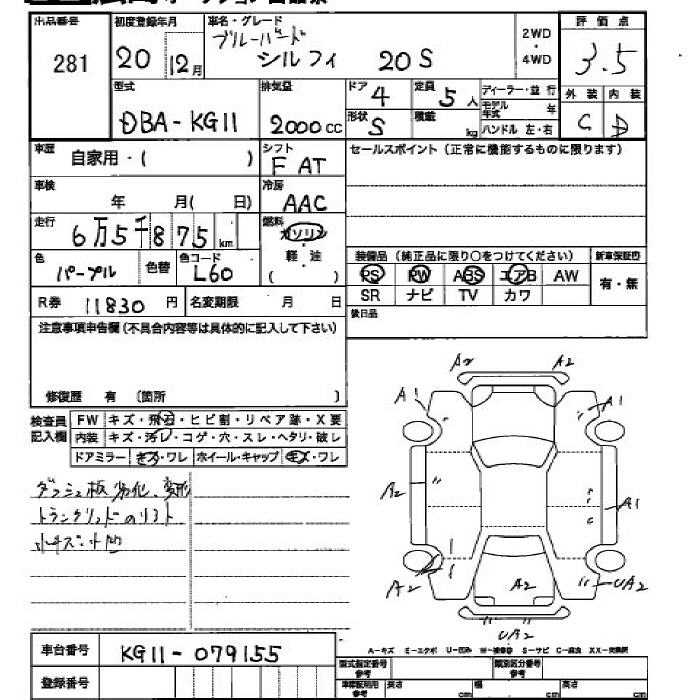 出品番号 初度登録年月 車名・グレード 2WD 評価点
281 20 12月 ブルーバード ・ 3.5
シルフィ 20S 4WD
型式 排気量 ドア 4 定員 5人 ディーラー・並行 外装 内装
DBA-KG11 2000cc 形状 S 積載 kg モデル年式 年 C D
ハンドル 左・右
車歴 自家用・( ) シフト F AT セールスポイント(正常に機能するものに限ります)
車検 年 月( 日) 冷房 AAC
走行 6万5千875km 燃料 ガソリン
軽・油
( )
色 パープル 色替 色コード L60 装備品(純正品に限り○をつけてください) 新車保証書
PS PW ABS エアB AW 有・無
R券 11830円 名変期限 月 日 SR ナビ TV カワ
注意事項申告欄(不具合内容等は具体的に記入して下さい) 後日品
修復歴 有 (箇所 )
検査員 FW キズ・飛石・ヒビ割・リペア跡・X要
記入欄 内装 キズ・汚レ・コゲ・穴・スレ・ヘタリ・破レ
ドアミラー キズ・ワレ ホイール・キャップ キズ・ワレ
ダッシュ板 劣化、変形
トランクリッドのリフト
小キズ・小凹
A2 A2
A1 A1
A2 A1
A2 A2 UA2
UA2
車台番号 KG11-079155 A-キズ E-エクボ U-凹み W-補修跡 S-サビ C-腐食 XX-交換済
登録番号 型式指定番号 参考 類別区分番号 参考
車検証明用 参考 長さ cm 幅 cm 高さ cm